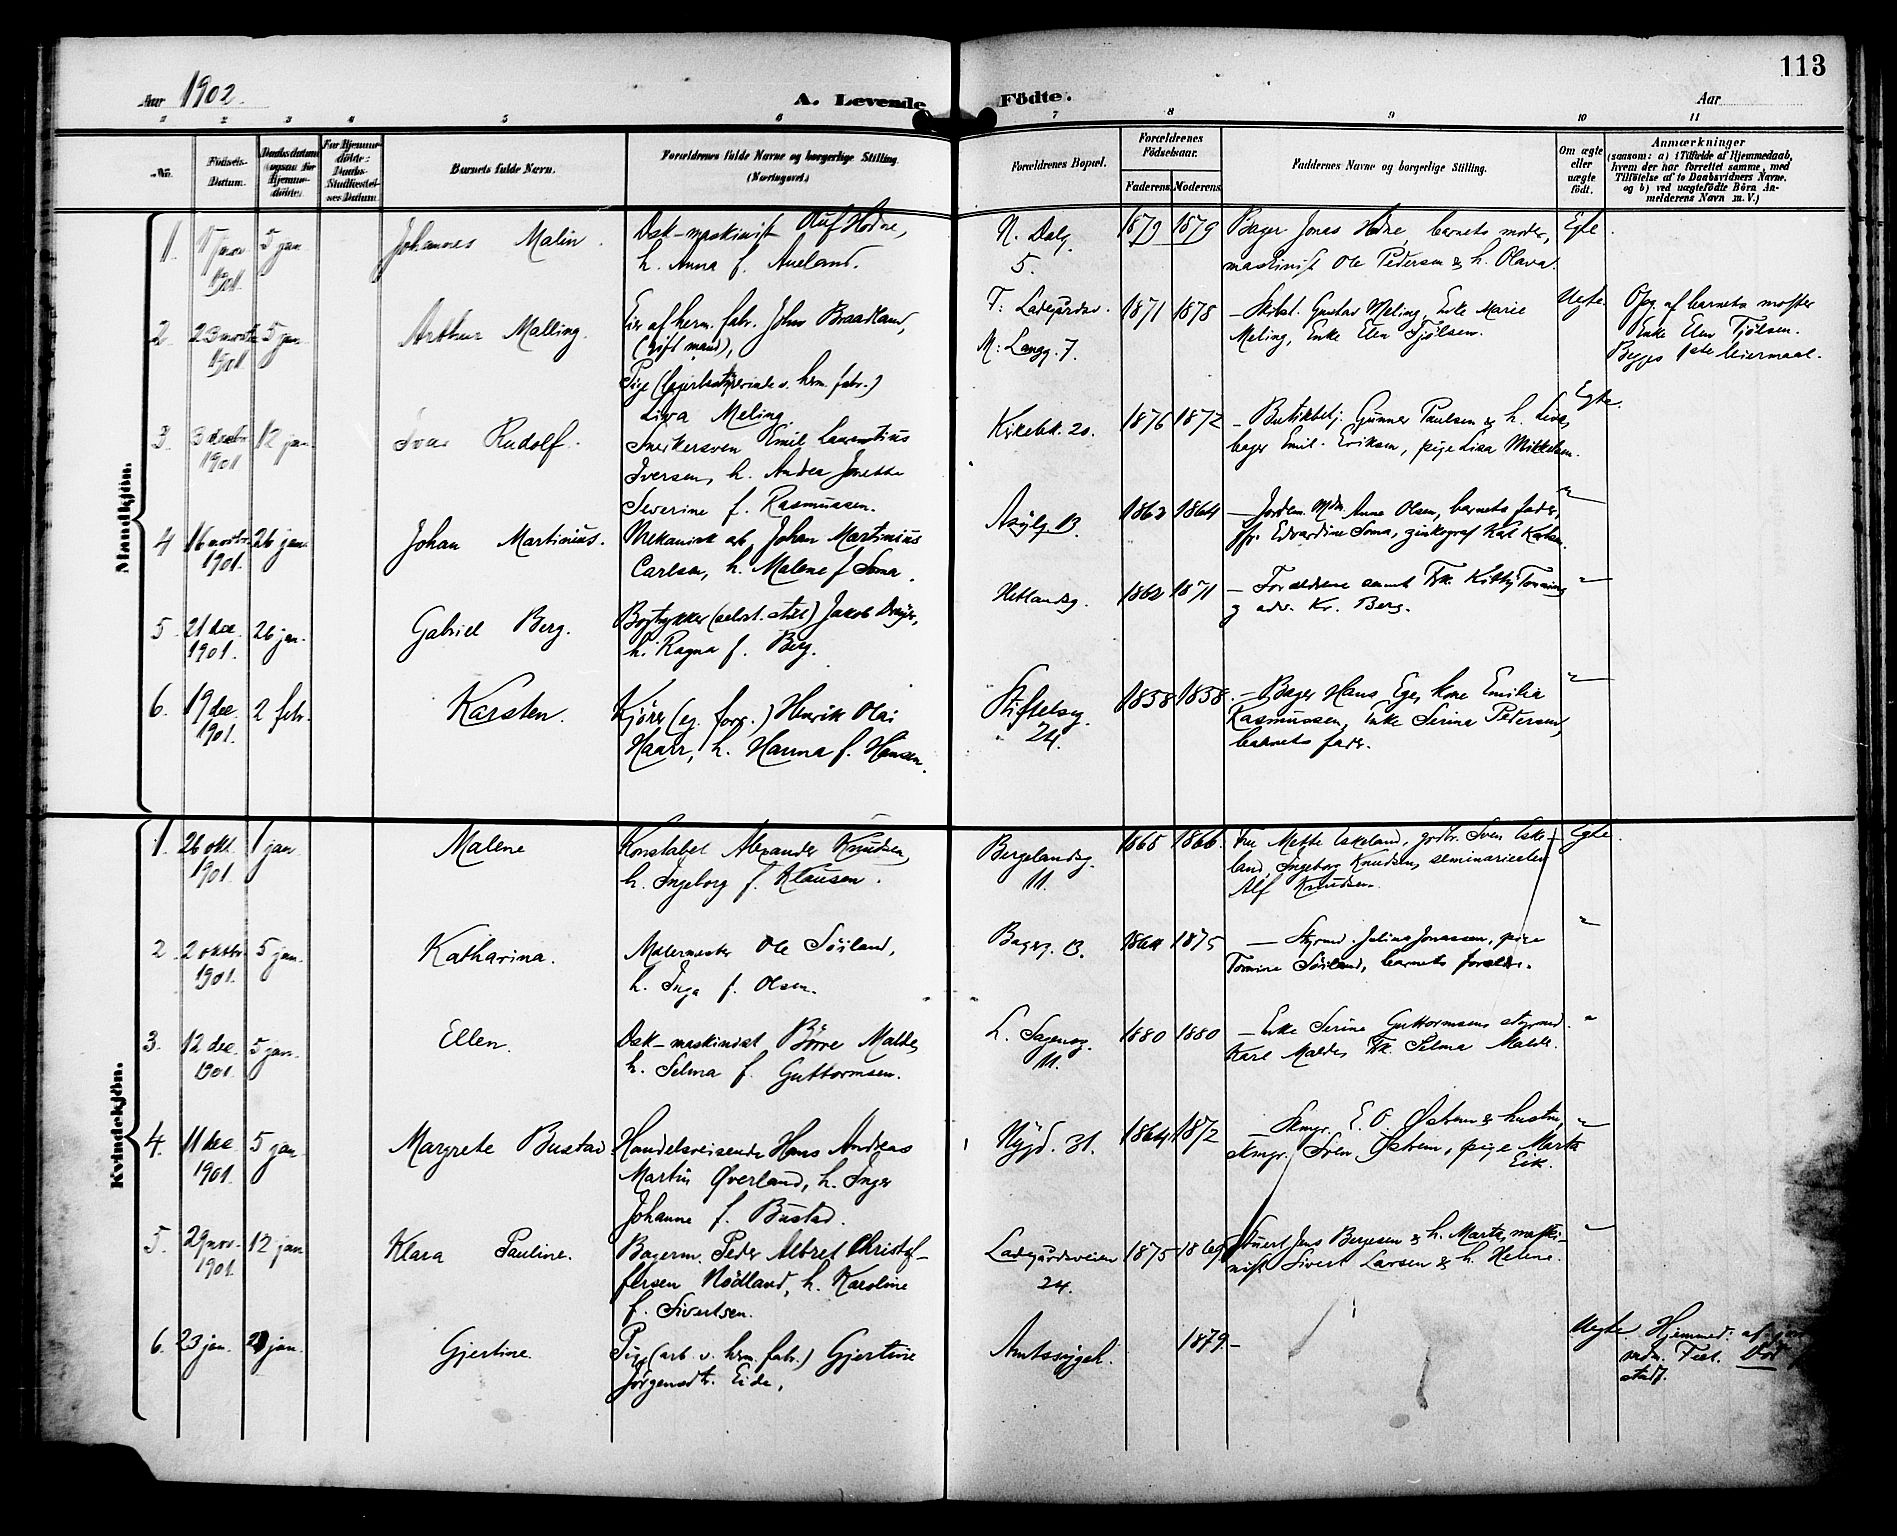 113
Aar 1902.
A. Levende Födte.
Aar
1 2 3 4 5 6 7 8 9 10 11
No.
Födsels-Datum.
Daabsdatum (ogsaa for Hjemmedöbte).
For Hjemmedöbte: Daabs-Stadfæstelses Datum.
Barnets fulde Navn.
Forældrenes fulde Navne og borgerlige Stilling (Næringsvei.)
Forældrenes Bopæl.
Forældrenes Födselsaar.
Faderens Moderens
Faddernes Navne og borgerlige Stilling.
Om ægte eller uægte födt.
Anmærkninger
(saasom: a) i Tilfælde af Hjemmedaab,
hvem der har forrettet samme, med
Tilföielse af to Daabsvidners Navne.
og b) ved uægtefödte Börn An-
melderens Navn m. V.)
Mandkjön.
1. 5 jan Johannes Malin. Dsk-maskinist Oluf Hodne,
h. Anna f. Aueland.
N. Dalg.
5.
1879 1879 Bager Jonas Hodne, barnets moder,
maskinist Ole Pedersen & h. Olava.
Egte.
2. 1901 5 jan Arthur Malling. Eier af herm. fabr. John Braadland,
(gift mand),
Pige v. herm. fabr.)
Liva Meling
F: Ladegårdsv.
M: Langg. 7.
1871 1878 – Skibst. Gustav Meling, Enke Marie
Meling, Enke Elen Tjölsen.
Uegte. Opg. af barnets moster
Enke Elen Tjölsen.
Begges 1ste leiermaal.
3. 1901 12 jan Ivar Rudolf. Snekkersven Emil Laurentius
Iversen, h. Andrea Jonette
Severine f. Rasmussen.
Kirkebk. 20. 1876 1872 – Butikbetj. Gunner Paulsen & h. Lina,
bager Emil Eriksen, pige Lisa Mikkelsen.
Egte.
4 16 1901. 26 jan. Johan Martinius. Mekanisk arb. Johan Martinius
Carlsen, h. Malene f Soma.
Asylg. 13. 1862 1864 – Jordem. Mdm. Anne Olsen, barnets fader,
Edvardine Soma, zinkograf Karl
"
5. 21 dec 1901. 26 jan. Gabriel Berg. Bogtrykker Jakob Dreyer,
h. Ragna f. Berg.
Hetlandsg. 1862 1871 – Forældrene samt Frk. Kitty
og adv. Kr. Berg.
"
6. 19 dec 1901. 2 febr. Karsten. Kjörer (eg. forr.) Henrik Olai
Haarr, h. Hanna f. Hansen.
Stiftelsesg.
24.
1858 1858. – Bager Hans Ege, kone Emilie
Rasmussen, Enke Serina Petersen,
barnets fader.
"
Kvindekjön.
1. 26 okt 1901. 1 jan Malene Konstabel Alexander Knudsen,
h. Ingeborg f. Klausen.
Bergelandsg.
11.
1865 1866. Fru Mette Eskeland, grdbr. Sven Eske-
land, Ingeborg Knudsen, seminarieelev
Alf Knudsen.
Egte.
2 2 oktbr 1901. 5 jan. Katharina. Malermester Ole Söiland,
h. Inga f. Olsen.
Bagerg. 13. 1864 1875 – Styrmd. Julius Jonassen, pige
Tomine Söiland, barnets forældre.
"
3. 12 dec. 1901. 5 jan. Ellen. Dsk-maskinist Börre Malde,
h. Selma f. Guttormsen.
L. Sagveg.
11.
1880 1880 – Enke Serine Guttormsen, styrmd.
Karl Malde, Frk. Selma Malde.
"
4. 11 dec 1901. 5 jan Margrete Bustad Handelsreisende Hans Andreas
Martin Øverland, h. Inger
Johanne f. Bustad.
Nygd. 31. 1864 1872 – Skmgr. E. O. Østrem & hustru,
skmgr. Sven Østrem, pige Marta
Eik.
"
5. 29 nov. 1901. 12 jan Klara Pauline. Bagerm. Peder Albret Christof-
fersen Nödland, h. Karoline
f. Sivertsen.
Ladegårdsveien
24.
1875 1869 Stuert Jens Bergesen & h. Marta, maski-
nist Sivert Larsen & h. Helene.
"
6. 23 jan. jan. Gjertine. Pige (arb. v. herm. fabr.) Gjertine
Jörgensdtr. Eide.
Amtssygeh. 1879. –
Uegte. Hjemmed: af
stadf.